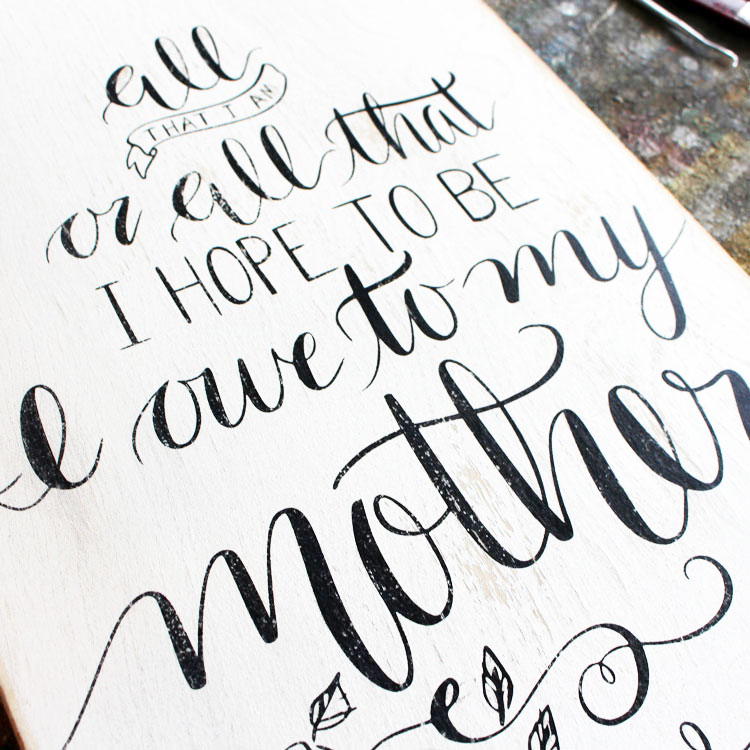 all
THAT I AM
or all that
I HOPE TO BE
I owe to my
mother